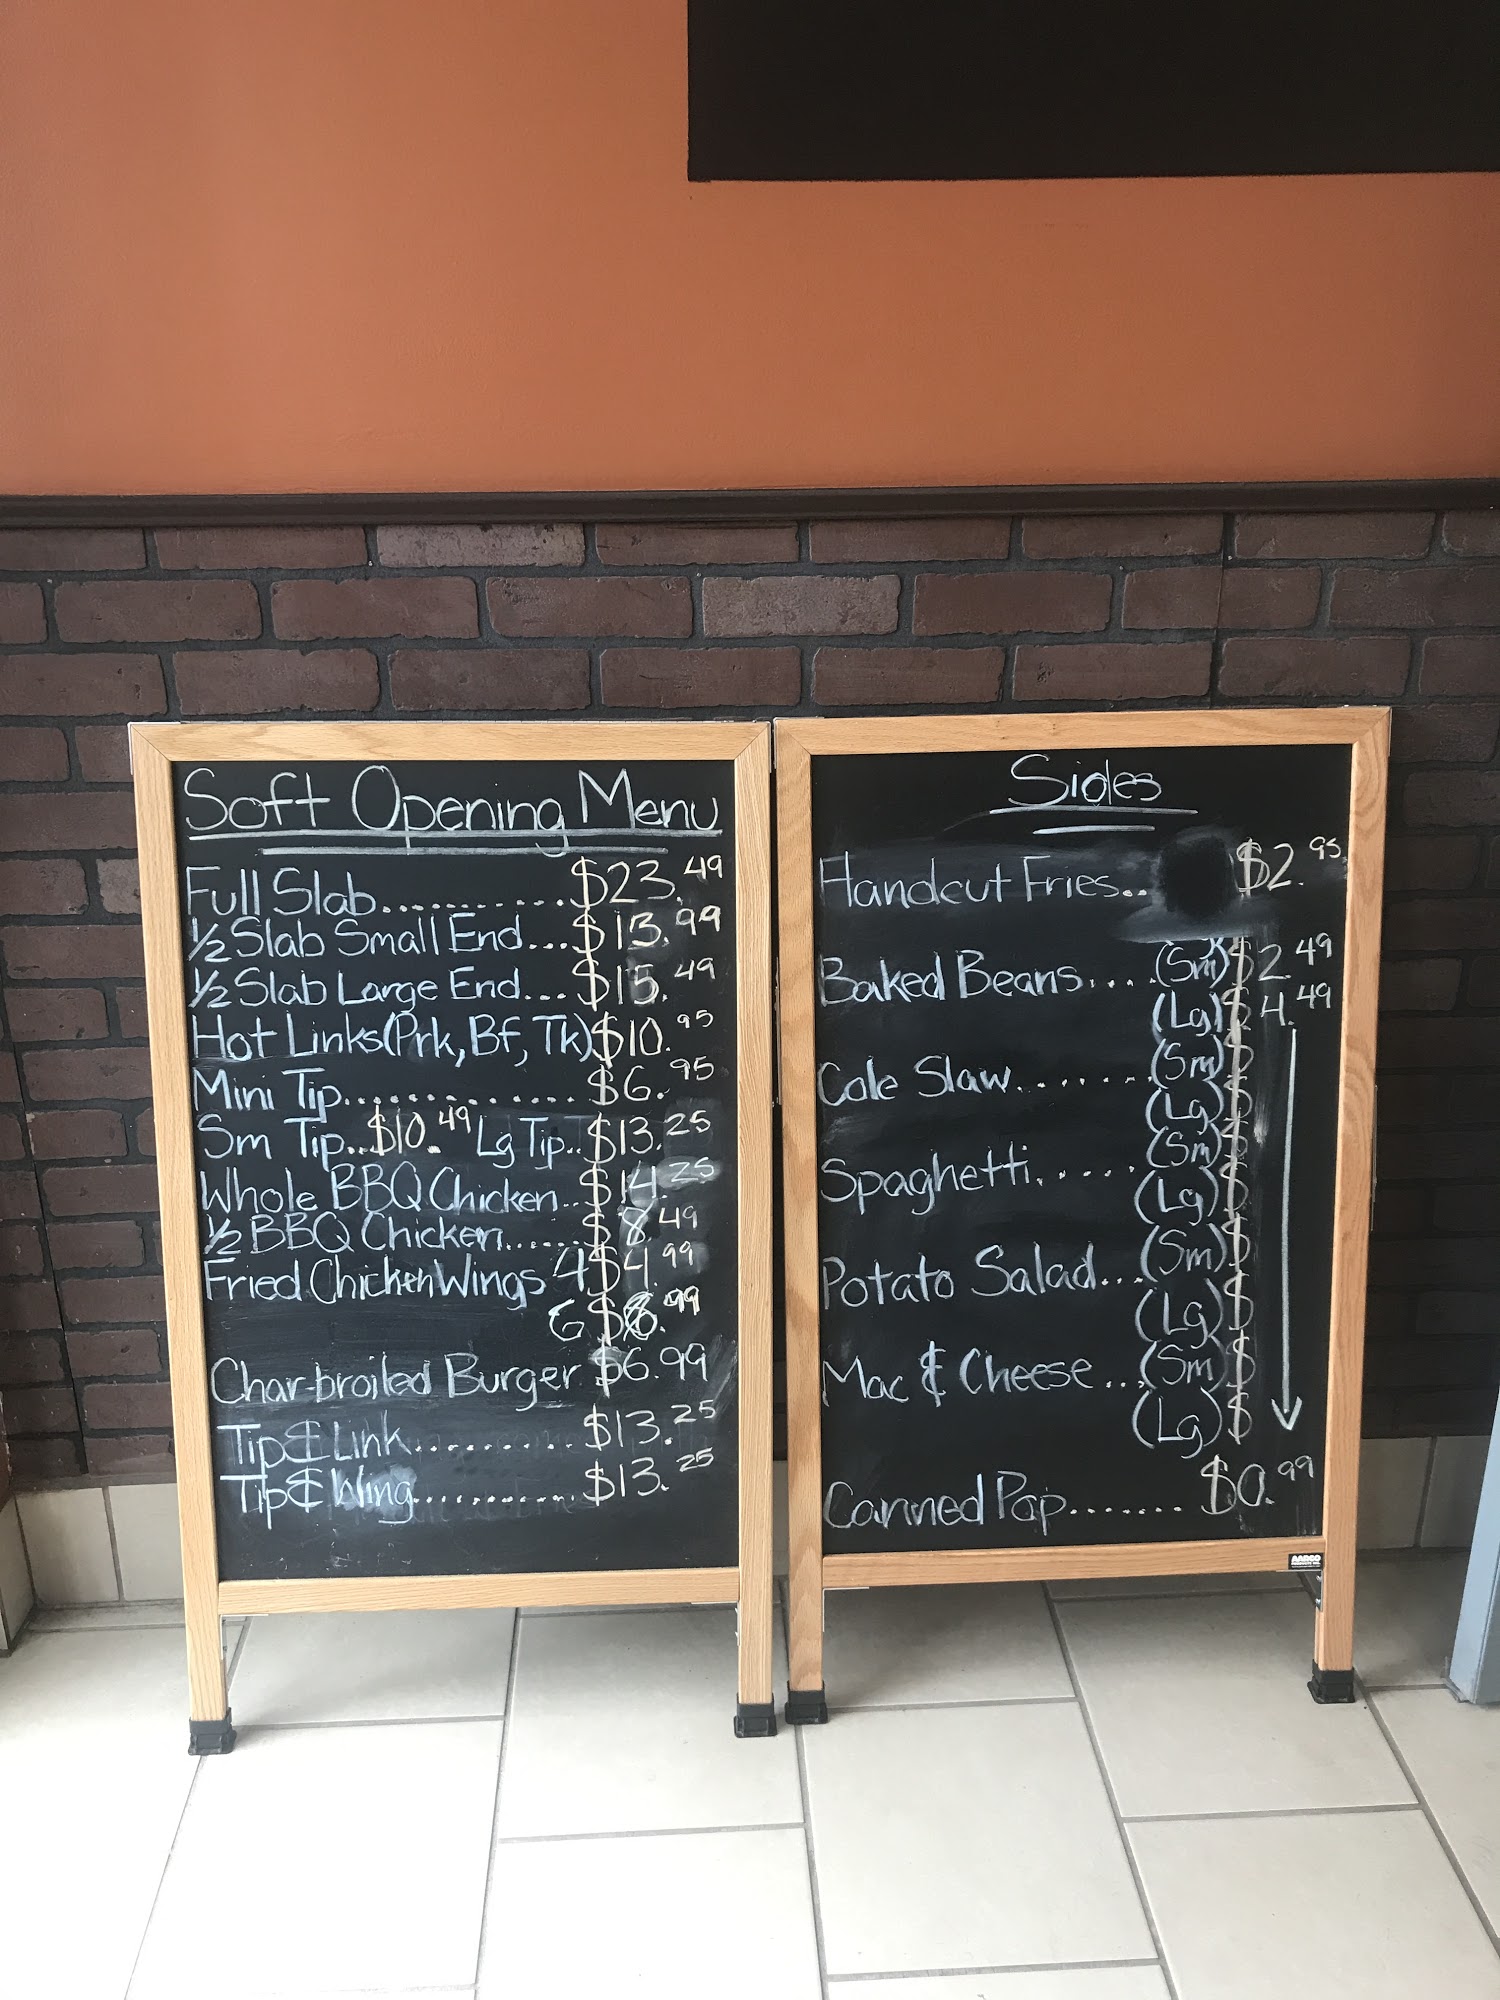 Soft Opening Menu
Full Slab...........$23.49
1/2 Slab Small End...$13.99
1/2 Slab Large End...$15.49
Hot Links(Prk, Bf, Tk)$10.95
Mini Tip.............$6.95
Sm Tip..$10.49 Lg Tip..$13.25
Whole BBQ Chicken..$14.25
1/2 BBQ Chicken......$8.49
Fried Chicken Wings 4 $4.99
6 $6.99
Char-broiled Burger $6.99
Tip & Link..........$13.25
Tip & Wing...........$13.25
Sides
Handcut Fries.. $2.95
Baked Beans....(Sm) $2.49
(Lg) $4.49
Cole Slaw.......(Sm) $
(Lg) $
Spaghetti......(Sm) $
(Lg) $
Potato Salad...(Sm) $
(Lg) $
Mac & Cheese...(Sm) $
(Lg) $
Canned Pop....... $0.99
AARCO